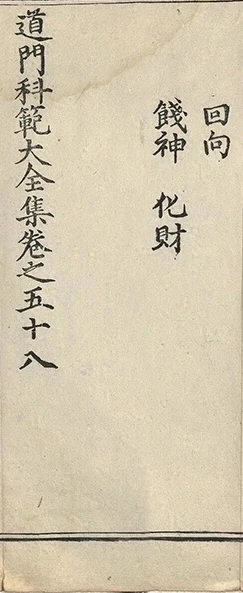 回向
餞神 化財
道門科範大全集卷之五十八